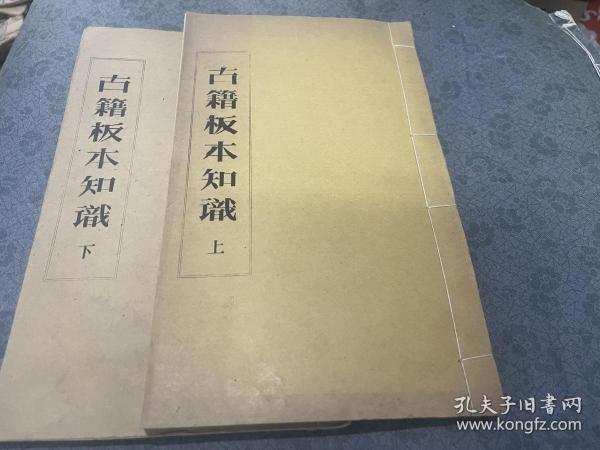 古籍板本知識
上
古籍板本知識
下
孔夫子旧书网
www.kongfz.com